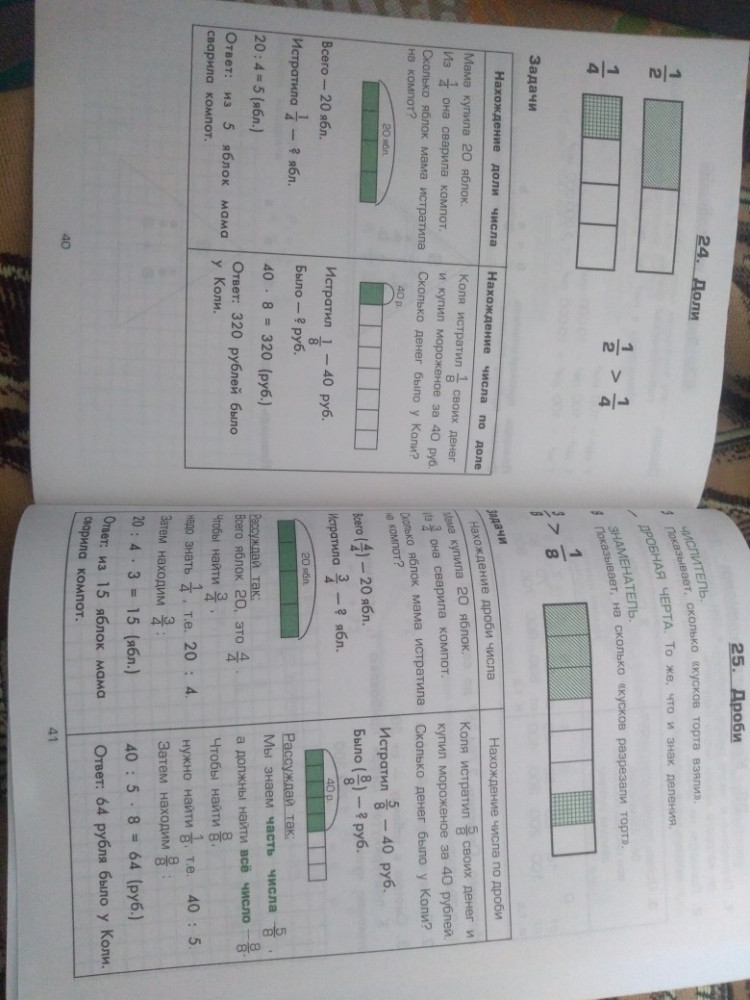 24. Доли
1/2
1/4
1/2 > 1/4
Задачи
Нахождение доли числа
Мама купила 20 яблок.
Из 1/4 она сварила компот.
Сколько яблок мама истратила
на компот?
20 ябл.
Всего – 20 ябл.
Истратила 1/4 – ? ябл.
20 : 4 = 5 (ябл.)
Ответ: из 5 яблок мама
сварила компот.
Нахождение числа по доле
Коля истратил 1/8 своих денег
и купил мороженое за 40 руб.
Сколько денег было у Коли?
40 р.
Истратил 1/8 – 40 руб.
Было – ? руб.
40 · 8 = 320 (руб.)
Ответ: 320 рублей было
у Коли.
40
25. Дроби
3
ЧИСЛИТЕЛЬ.
Показывает, сколько «кусков торта взяли».
ДРОБНАЯ ЧЕРТА. То же, что и знак деления.
8
ЗНАМЕНАТЕЛЬ.
Показывает, на сколько «кусков разрезали торт».
3/8 > 1/8
Задачи
Нахождение дроби числа
Мама купила 20 яблок.
Из 3/4 она сварила компот.
Сколько яблок мама истратила
на компот?
Всего (4/4) – 20 ябл.
Истратила 3/4 – ? ябл.
20 ябл.
Рассуждай так:
Всего яблок 20, это 4/4.
Чтобы найти 3/4,
надо знать 1/4, т.е. 20 : 4.
Затем находим 3/4:
20 : 4 · 3 = 15 (ябл.)
Ответ: из 15 яблок мама
сварила компот.
Нахождение числа по дроби
Коля истратил 5/8 своих денег и
купил мороженое за 40 рублей.
Сколько денег было у Коли?
Истратил 5/8 – 40 руб.
Было (8/8) – ? руб.
40 р.
Рассуждай так:
Мы знаем часть числа 5/8,
а должны найти всё число 8/8.
Чтобы найти 8/8,
нужно найти 1/8 т.е. 40 : 5.
Затем находим 8/8:
40 : 5 · 8 = 64 (руб.)
Ответ: 64 рубля было у Коли.
41